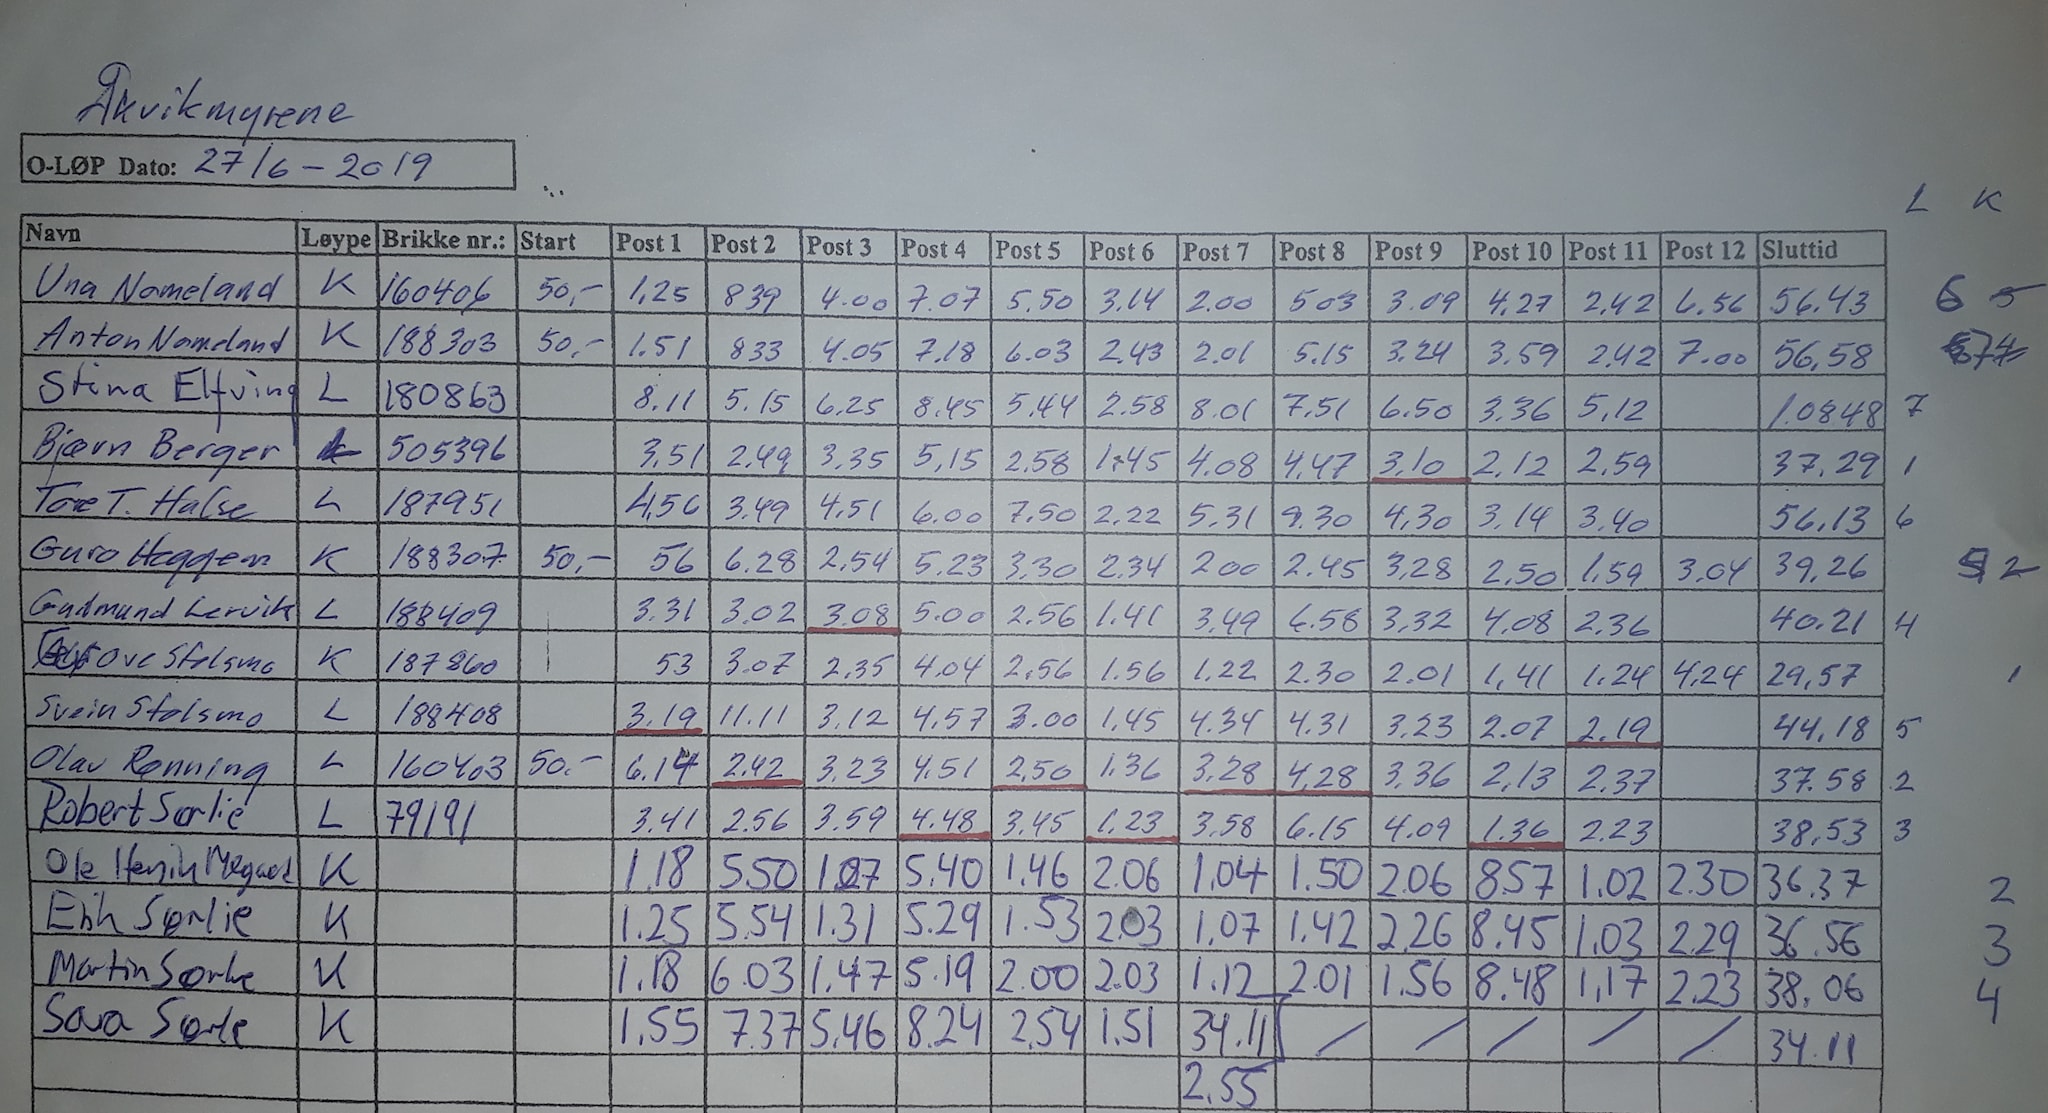 Åkvikmyrene
O-LØP Dato: 27/6-2019
L K
Navn Løype Brikke nr.: Start Post 1 Post 2 Post 3 Post 4 Post 5 Post 6 Post 7 Post 8 Post 9 Post 10 Post 11 Post 12 Sluttid
Una Nameland K 160406 50,- 1,25 839 4.00 7.07 5.50 3.14 2.00 503 3.09 4.27 2.42 6.56 56.43 6
Anton Nameland K 188303 50,- 1.51 833 4.05 7.18 6.03 2.43 2.01 5.15 3.24 3.59 2.42 7.00 56,58 7
Stina Elfving L 180863 8.11 5.15 6.25 8.45 5.44 2.58 8.01 7.51 6.50 3.36 5,12 1.0848 7
Bjørn Berger 505396 3,51 2.49 3.35 5,15 2.58 1.45 4.08 4.47 3.10 2.12 2.59 37.29 1
Tore T. Halse L 187951 4,56 3.49 4.51 6.00 7.50 2.22 5.31 9.30 4,30 3.14 3.40 56.13 6
Guro Heggem K 188307 50,- 56 6.28 2.54 5.23 3,30 2.34 200 2.45 3,28 2,50 1.59 3.04 39,26 2
Gudmund Lervik L 188409 3.31 3.02 3.08 5.00 2.56 1.41 3,49 6.58 3,32 4.08 2.36 40.21 4
Ove Stolsmo K 187860 53 3.07 2,35 4.04 2,56 1.56 1.22 2.30 2.01 1,41 1.24 4.24 29,57 1
Svein Stolsmo L 188408 3.19 11.11 3.12 4.57 3.00 1.45 4.34 4.31 3.23 2.07 2.19 44,18 5
Olav Rønning L 160403 50.- 6.14 2.42 3.23 4.51 2.50 1.36 3.28 4,28 3.36 2,13 2.37 37.58 2
Robert Sørlie L 79191 3.41 2.56 3.59 4.48 3.45 1.23 3.58 6.15 4.09 1.36 2.23 38,53 3
Ole Henrik K 1.18 5.50 1.27 5.40 1.46 2.06 1.04 1.50 2.06 857 1.02 2.30 36.37 2
Erik Sørlie K 1.25 5.54 1.31 5.29 1.53 2.03 1,07 1.42 2,26 8.45 1.03 2.29 36.56 3
Martin Sørlie K 1.18 6.03 1.47 5.19 2.00 2.03 1.12 2.01 1.56 8.48 1,17 2.23 38,06 4
Sara Sørlie K 1.55 7.37 5.46 8.24 2,54 1.51 34.11 / / / / / 34.11
2.55